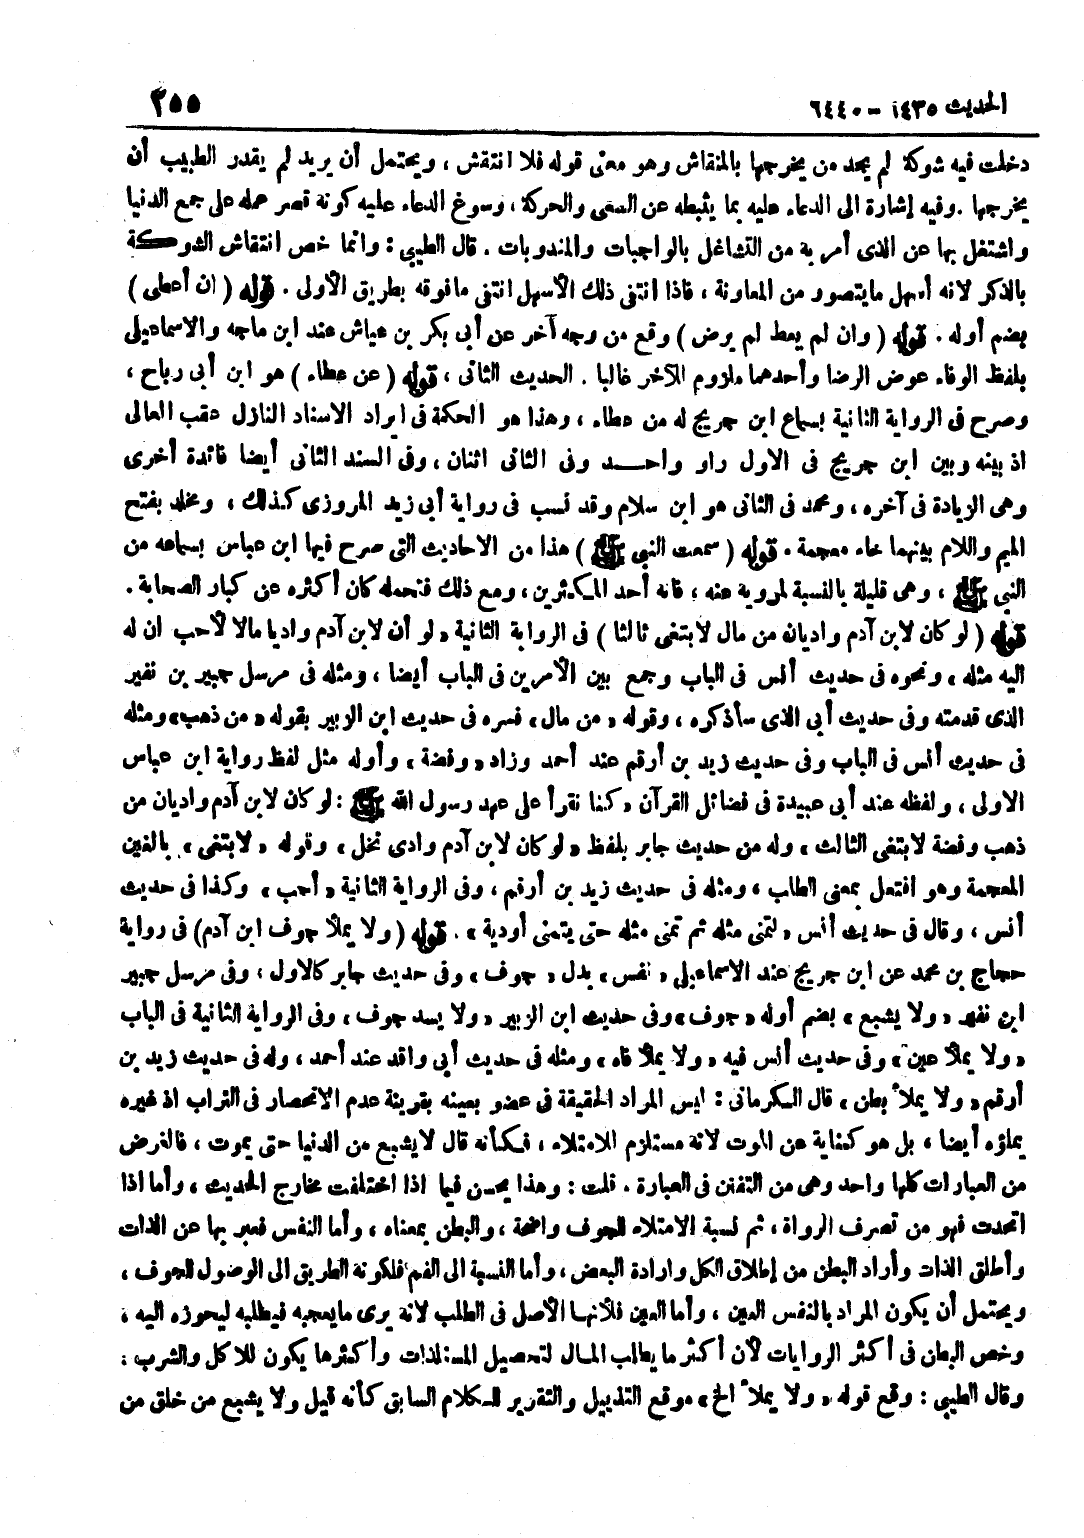 الحديث ١٤٣٥ - ٦٤٤٠
٢٥٥
دخلت فيه شوكة لم يجد من يخرجها بالمنقاش وهو معنى قوله فلا انتقش ، ويحتمل أن يريد لم يقدر الطبيب أن
يخرجها . وفيه إشارة الى الدعاء عليه بما يثبطه عن السعى والحركة ، وسوغ الدعاء عليه كونه قصر عمله على جمع الدنيا
واشتغل بها عن الذى أمر به من التشاغل بالواجبات والمندوبات . قال الطيبي : وانما خص انتقاش الشوكة
بالذكر لانه أسهل مايتصور من المعاونة ، فاذا انتفى ذلك الأسهل انتفى مافوقه بطريق الأولى . قوله ( ان أعطى )
بضم أوله . قوله ( وان لم يعط لم يرض ) وقع من وجه آخر عن أبى بكر بن عياش عند ابن ماجه والاسماعيلى
بلفظ الوفاء عوض الرضا وأحدهما ملزوم للآخر غالبا . الحديث الثانى ، قوله ( عن عطاء ) هو ابن أبى رباح ،
وصرح فى الرواية الثانية بسماع ابن جريج له من عطاء ، وهذا هو الحكمة فى ايراد الاسناد النازل عقب العالى
اذ بينه وبين ابن جريج فى الاول راو واحد وفى الثانى اثنان ، وفى السند الثانى أيضا فائدة أخرى
وهى الزيادة فى آخره ، ومحمد فى الثانى هو ابن سلام وقد نسب فى رواية أبى زيد المروزى كذلك ، ومخلد بفتح
الميم واللام بينهما خاء معجمة . قوله ( سمعت النبي ﷺ ) هذا من الاحاديث التى صرح فيها ابن عباس بسماعه من
النبى ﷺ ، وهى قليلة بالنسبة لمرويه عنه ، فانه أحد المكثرين ، ومع ذلك فتحمله كان أكثره عن كبار الصحابة .
قوله ( لو كان لابن آدم واديان من مال لابتغى ثالثا ) فى الرواية الثانية « لو أن لابن آدم واديا مالا لأحب ان له
اليه مثله » ونحوه فى حديث أنس فى الباب وجمع بين الأمرين فى الباب أيضا ، ومثله فى مرسل جبير بن نفير
الذى قدمته وفى حديث أبى الذى سأذكره ، وقوله « من مال » فسره فى حديث ابن الزبير بقوله « من ذهب » ومثله
فى حديث أنس فى الباب وفى حديث زيد بن أرقم عند أحمد وزاد « وفضة » وأوله مثل لفظ رواية ابن عباس
الاولى ، ولفظه عند أبى عبيدة فى فضائل القرآن « كنا نقرأ على عهد رسول الله ﷺ : لو كان لابن آدم واديان من
ذهب وفضة لابتغى الثالث » وله من حديث جابر بلفظ « لو كان لابن آدم وادى نخل » وقوله « لابتغى » بالغين
المعجمة وهو افتعل بمعنى الطلب ، ومثله فى حديث زيد بن أرقم ، وفى الرواية الثانية « أحب » وكذا فى حديث
أنس ، وقال فى حديث أنس « لتمنى مثله ثم تمنى مثله حتى يتمنى أودية » . قوله ( ولا يملأ جوف ابن آدم ) فى رواية
حجاج بن محمد عن ابن جريج عند الاسماعيلى « نفس » بدل « جوف » وفى حديث جابر كالاول ، وفى مرسل جبير
ابن نفير « ولا يشبع » بضم أوله « جوف » وفى حديث ابن الزبير « ولا يسد جوف ، وفى الرواية الثانية فى الباب
« ولا يملأ عين » وفى حديث أنس فيه « ولا يملأ فاه » ومثله فى حديث أبى واقد عند أحمد ، وله فى حديث زيد بن
أرقم « ولا يملأ بطن » قال الكرمانى : ليس المراد الحقيقة فى عضو بعينه بقرينة عدم الانحصار فى التراب اذ غيره
يملؤه أيضا ، بل هو كناية عن الموت لانه مستلزم للامتلاء ، فكأنه قال لايشبع من الدنيا حتى يموت ، فالغرض
من العبارات كلها واحد وهى من التفنن فى العبارة . قلت : وهذا يحسن فيما اذا اختلفت مخارج الحديث ، وأما اذا
اتحدت فهو من تصرف الرواة ، ثم نسبة الامتلاء للجوف واضحة ، والبطن بمعناه ، وأما النفس فعبر بها عن الذات
وأطلق الذات وأراد البطن من إطلاق الكل وارادة البعض ، وأما النسبة الى الفم فلكونه الطريق الى الوصول للجوف ،
ويحتمل أن يكون المراد بالنفس العين ، وأما العين فلأنها الأصل فى الطلب لانه يرى مايعجبه فيطلبه ليحوزه اليه ،
وخص البطن فى أكثر الروايات لأن أكثر ما يطلب المال لتحصيل المستلذات وأكثرها يكون للاكل والشرب ،
وقال الطيبى : وقع قوله « ولا يملأ الخ » موقع التذييل والتقرير للكلام السابق كأنه قيل ولا يشبع من خلق من